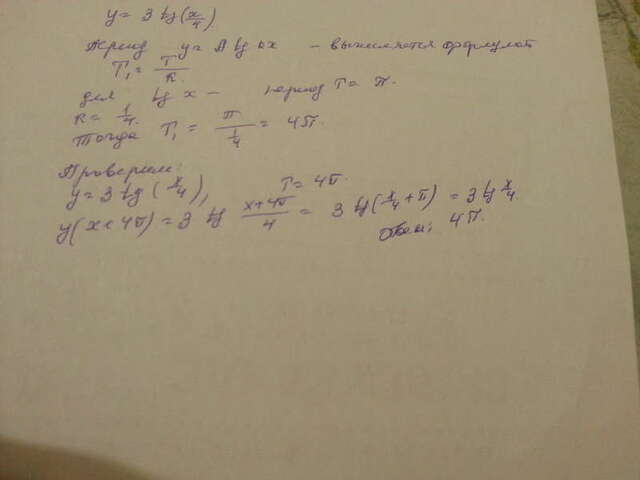 y = 3 tg(x/4)
Период y = A tg kx — вычисляется формулой
T₁ = T/k
для tg x — период T = π.
k = 1/4.
Тогда T₁ = π/(1/4) = 4π.
Проверим:
y = 3 tg(x/4), T = 4π.
y(x+4π) = 3 tg (x+4π)/4 = 3 tg(x/4 + π) = 3 tg x/4.
Ответ: 4π.